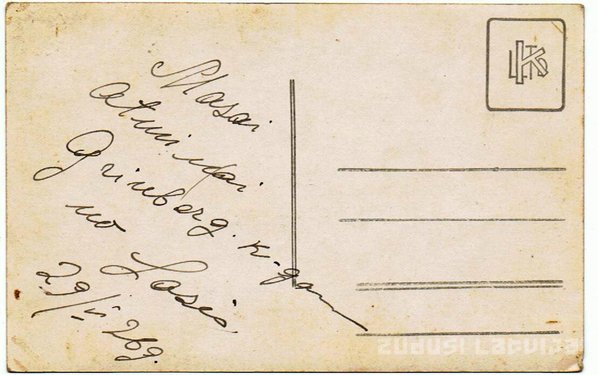 Masai
atmiņai
Grinberg. K-gam
no Lasis
29/V 26g.
LTKO
zudusi Latvija